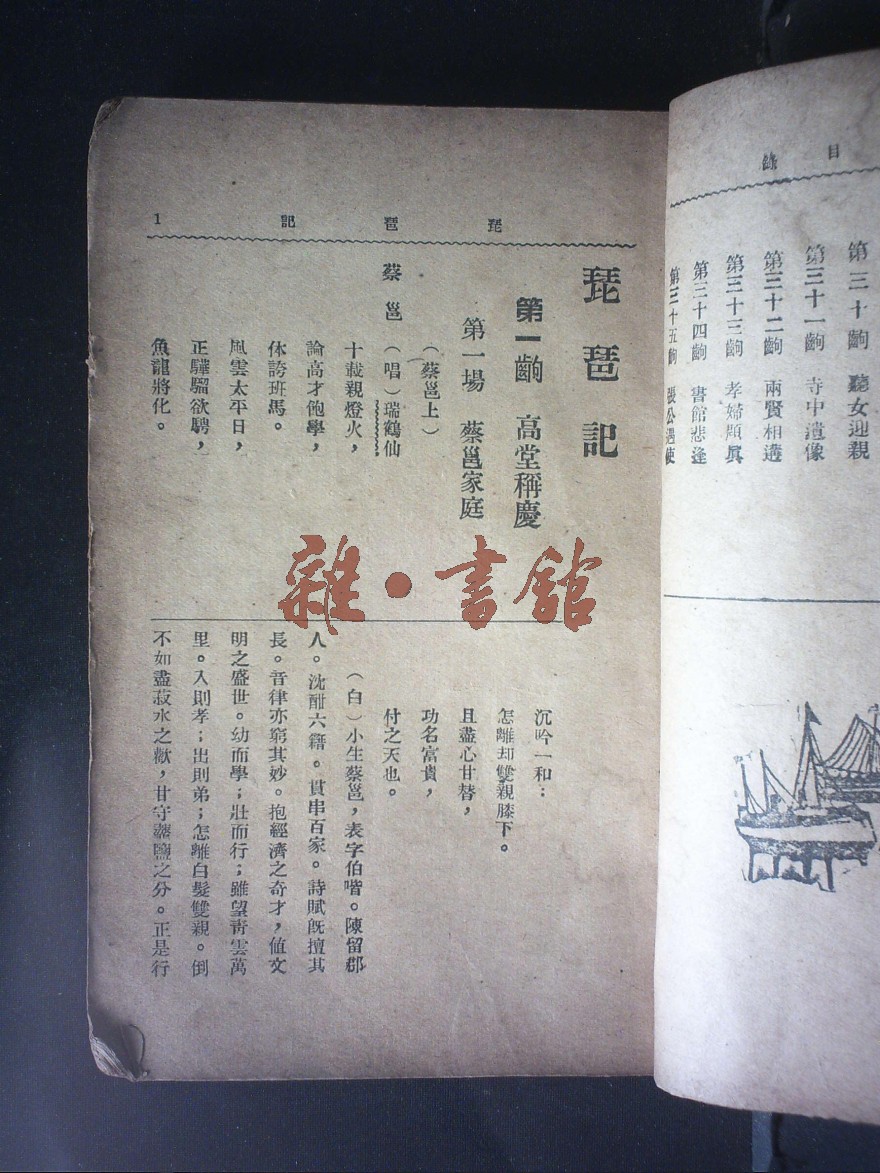 目錄
第三十齣 聽女迎親
第三十一齣 寺中遺像
第三十二齣 兩賢相遘
第三十三齣 孝婦題真
第三十四齣 書館悲逢
第三十五齣 張公遇使
琵琶記 1
琵琶記
第一齣 高堂稱慶
第一場 蔡邕家庭
（蔡邕上）
蔡邕（唱）瑞鶴仙
十載親燈火，
論高才飽學，
休誇班馬。
風雲太平日，
正驊騮欲騁，
魚龍將化。
沉吟一和：
怎離却雙親膝下。
且盡心甘替，
功名富貴，
付之天也。
（白）小生蔡邕，表字伯喈。陳留郡
人。沈酣六籍。貫串百家。詩賦既擅其
長。音律亦窮其妙。抱經濟之奇才，值文
明之盛世。幼而學；壯而行；雖望靑雲萬
里。入則孝；出則弟；怎離白髮雙親。倒
不如盡菽水之歡，甘守虀鹽之分。正是行
雜·書館